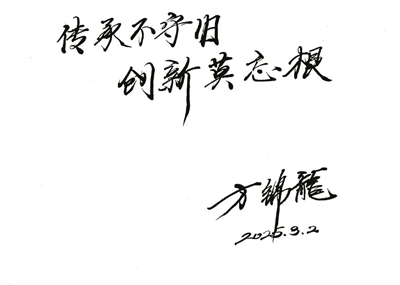 传承不守旧
创新莫忘根
方锦龍
2025.9.2